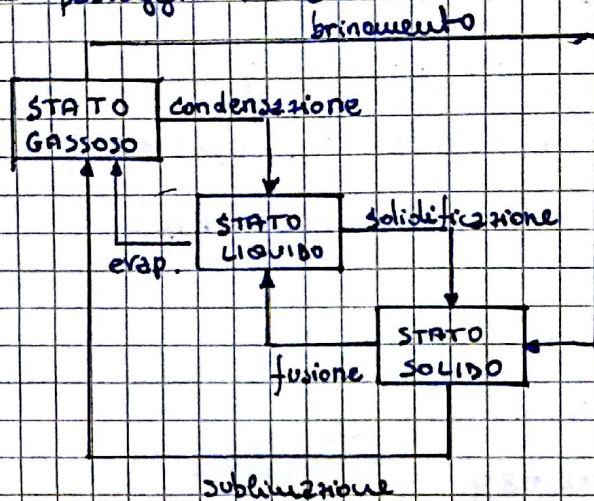 passagg
brinamento
STATO
GASSOSO
condensazione
STATO
LIQUIDO
solidificazione
evap.
STATO
SOLIDO
fusione
sublimazione